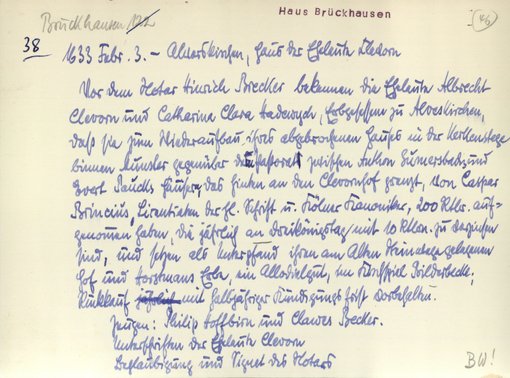 Bruckhausen 122
Haus Brückhausen
(46)
38
1633 Febr. 3. – Alverskirchen, Haus der Eheleute Clevorn
Vor dem Notar Hinrich Brecker bekennen die Eheleute Albrecht
Clevorn und Catharina Clara Hadewych, Erbgesessen zu Alveskirchen,
daß sie zum Wiederaufbau ihres abgebrochenen Hauses in der Kerkenstege
binnen Munster gegenüber der Pastorat zwischen Anton Bümersbach und
Evert Pauchs Häuser, das hinten an den Clevornhof grenzt, von Caspar
Brincius, Licentiaten der hl. Schrift u. Kölner Kanoniker, 200 Rtlr. auf-
genommen haben, die jährlich an Dreikönigstag mit 10 Rtlrn. zu verzinsen
sind, und setzen als Unterpfand ihren am Alten gelegenen
Hof und Horstmans Erbe, ein Allodielgut, im Kirchspiel Billerbeck.
Rückkauf jährlich mit halbjähriger Kündigungsfrist vorbehalten.
Zeugen: Philip Hoffbirn und Clawes Becker.
Unterschriften der Eheleute Clevorn
Beglaubigung und Signet des Notars
BW!